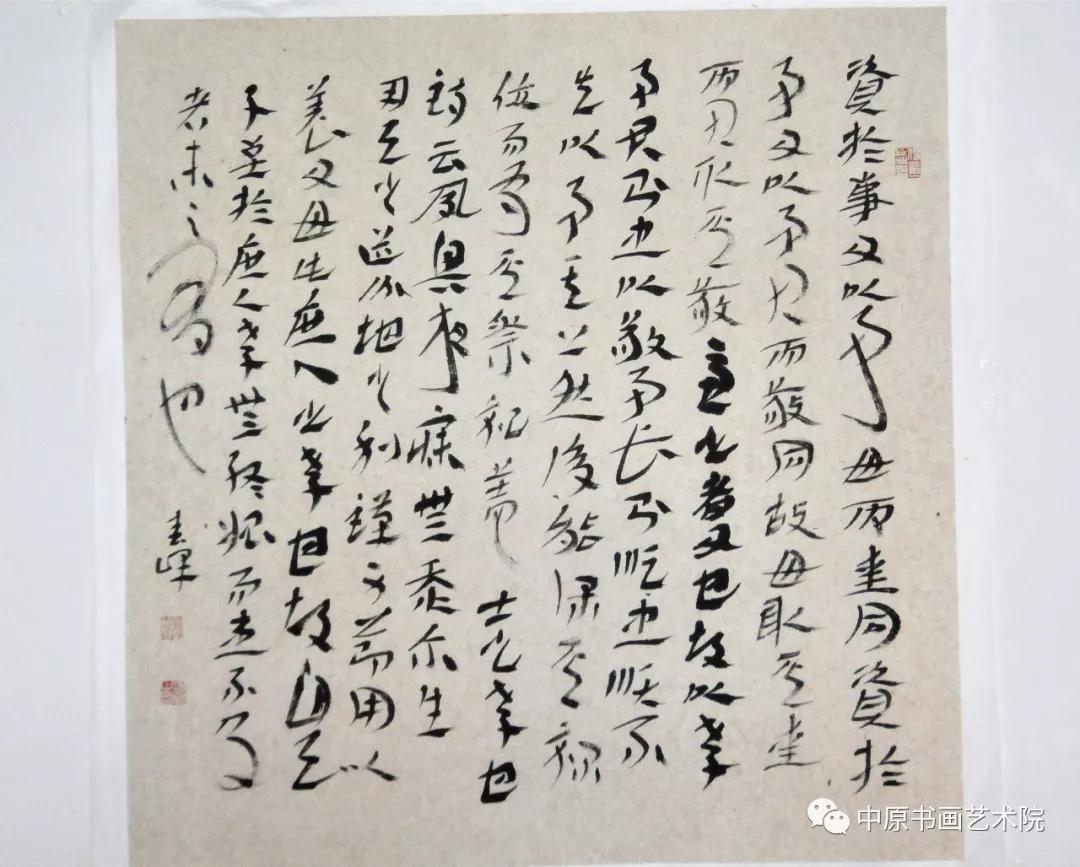 資於事父以事母而愛同資於
事父以事君而敬同故母取其愛
而君取其敬兼之者父也故以孝
事君則忠以敬事长則順忠順不
失以事其上然後能保其祿
位而守其祭祀蓋士之孝也
詩云夙興夜寐無忝尔生
用天之道分地之利謹身節用以
養父母此庶人之孝也故自天
子至於庶人孝無終始而患不及
者未之有也
中原书画艺术院